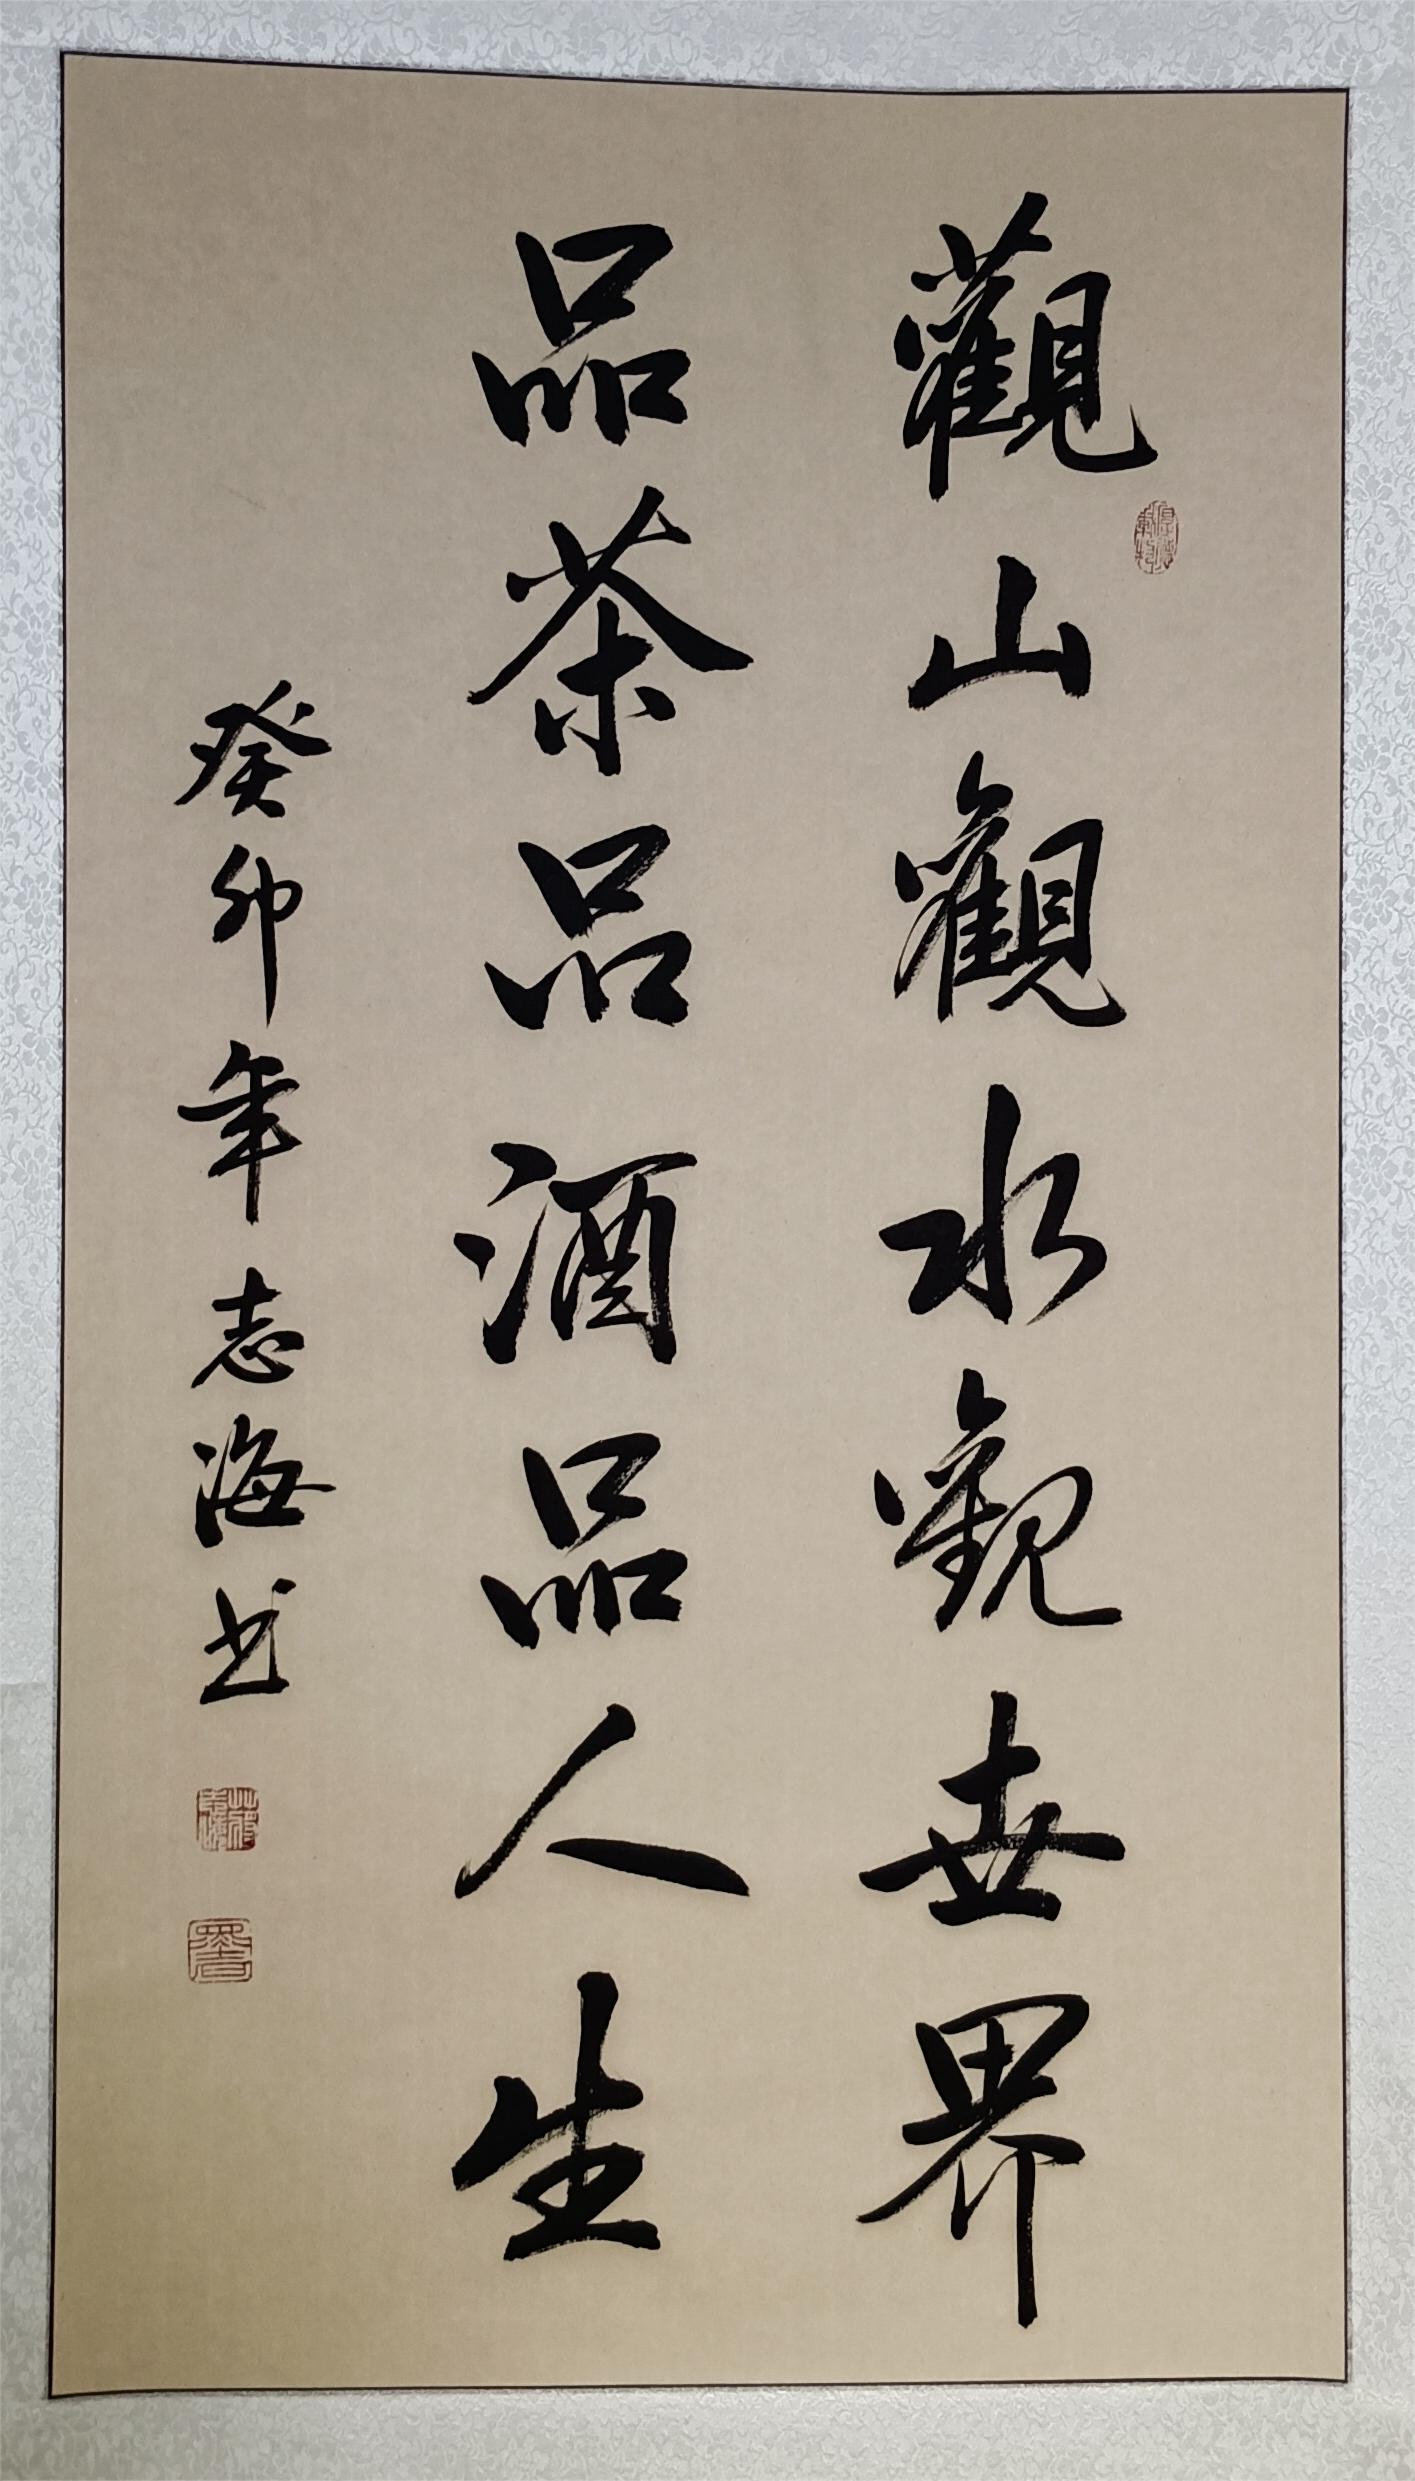 觀山觀水觀世界
品茶品酒品人生
癸卯年志海书